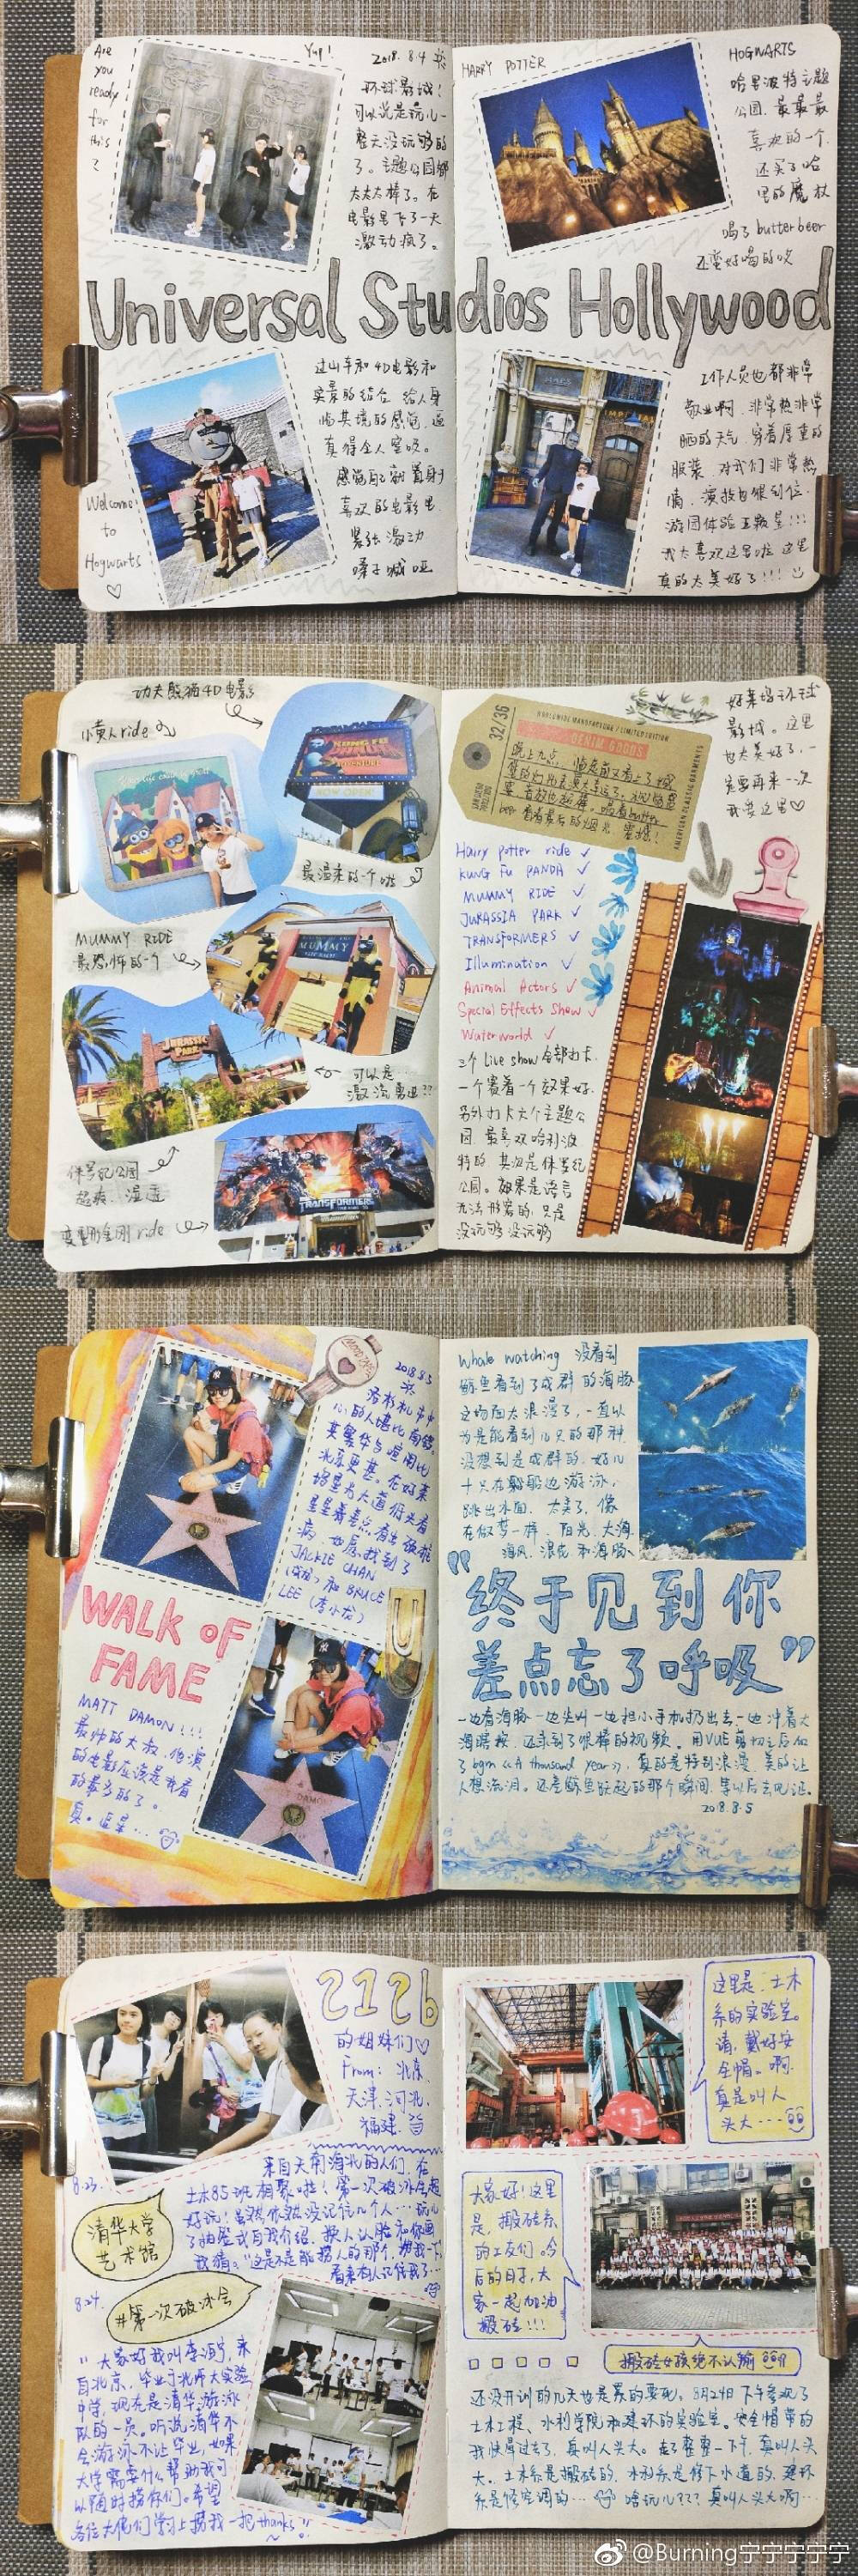 Are
you
ready
for
this
?
Yup!
2018.8.4
环球影城!
可以说是玩儿一
整天没玩够的
了。主题公园都
太太太棒了。在
电影里飞了一天
激动疯了。
HARRY POTTER
HOGWARTS
哈里波特主题
公园,最最最
喜欢的一个,
还买了哈
里的魔杖
喝了butterbeer
还蛮好喝的哎
Universal Studios Hollywood
过山车和4D电影和
实景的结合 给人身
临其境的感觉,逼
真得令人窒息。
感觉自己就置身
喜欢的电影里
紧张激动
嗓子喊哑
Welcome
to
Hogwarts
工作人员也都非常
敬业啊 非常热非常
晒的天气,穿着厚重的
服装,对我们非常热
情,演技也很到位
游园体验五颗星!!!
我太喜欢这里啦 这里
真的太美好了!!!
功夫熊猫4D电影
小黄人ride
KUNG FU
PANDA
ADVENTURE
NOW OPEN!
最温柔的一个啦
MUMMY RIDE
最恐怖的一个
MUMMY
JURASSIC
PARK
可以是…
激流勇进??
侏罗纪公园
超爽、湿透
TRANSFORMERS
变型金刚ride
32/36
WORLDWIDE MANUFACTURE / LIMITED EDITION
DENIM GOODS
AMERICAN CLASSIC GARMENTS
晚上九点,
beer 看着最后的烟火 震撼!
好莱坞环球
影城。这里
也太美好了,一
定要再来一次
我爱这里♡
Harry potter ride ✓
KUNG FU PANDA ✓
MUMMY RIDE ✓
JURASSIA PARK ✓
TRANSFORMERS ✓
Illumination ✓
Animal Actors ✓
Special Effects Show ✓
Waterworld ✓
三个live show全部打卡.
一个赛着一个效果好.
另外打卡六个主题公
园 最喜欢哈利波
特的 其次是侏罗纪
公园。效果是语言
无法形容的,只是
没玩够没玩够
2018.8.5
洛杉矶市中
心的人堪比南锣
其繁华与喧闹比
北京更甚。在好莱
坞星光大道低头看
星星看差点看出颈椎
病,也愿找到了
JACKIE CHAN
(成龙) 和 BRUCE
LEE (李小龙)
WALK OF
FAME
MATT DAMON!!!
最帅的大叔,他演
的电影应该是我看
的最多的了。
真·追星...
Whale watching 没看到
鲸鱼看到了成群的海豚
这场面太浪漫了,一直以
为是能看到几只的那种
没想到是成群的,好几
十只在船边游泳,
跳出水面,太美了,像
在做梦一样,阳光、大海
海风、浪花和海豚
“终于见到你
差点忘了呼吸”
一边看海豚一边尖叫一边担心手机扔出去一边冲着大
海嘚瑟,还录到了很棒的视频。用VUE剪切之后加
了bgm《A thousand years》,真的是特别浪漫,美的让
人想流泪。还差鲸鱼跃起的那个瞬间,等以后去见证。
2018.8.5
212b
的姐妹们♡
From:北京、
天津、河北、
福建
8.23.
来自天南海北的人们,在
土木85班相聚啦!第一次破冰会超
好玩!虽然依然没记住几个人…玩儿
了抽签式自我介绍,按人认脸和你画
我猜。“这是不是能捞人的那个,捞我一下”
看来有人记住我了…
清华大学
艺术馆
8.24.
#第一次破冰会
“大家好我叫李涓宁,来
自北京,毕业于北师大实验
中学,现在是清华游泳
队的一员。听说清华不
会游泳不让毕业,如果
大学需要什么帮助我可
以随时捞你们。希望
各位大佬们学习上捞我一把thanks”
这里是,土木
系的实验室。
请,戴好安
全帽。啊,
真是叫人
头大...
大家好!这里
是,搬砖系
的工友们。今
后的日子,大
家一起加油
搬砖!!!
搬砖女孩绝不认输
还没开训的几天也是累的要死。8月24日下午参观了
土木工程、水利学院和建环的实验室。安全帽带的
我快晕过去了,真叫人头大。走了整整一下午,真叫人头
大。土木系是搬砖的,水利系是修下水道的,建环
系是修空调的... 啥玩儿???真叫人头大啊...
@Burning宁宁宁宁宁